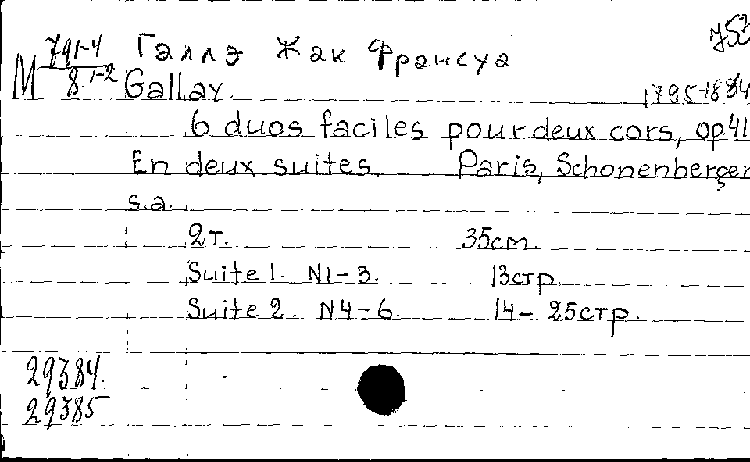 М 791-4 / 8 1-2 Галлэ Жак Франсуа
Gallay. 1795-1864
6 duos faciles pour deux cors, op 41
En deux suites. Paris, Schonenberger
s.a.
2т. 35cm.
Suite 1. N1-3. 13стр
Suite 2 N4-6. 14-25стр.
29384.
29385